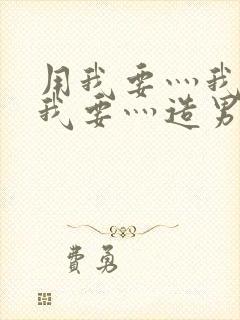 用我要灬我
我要灬造男
费勇